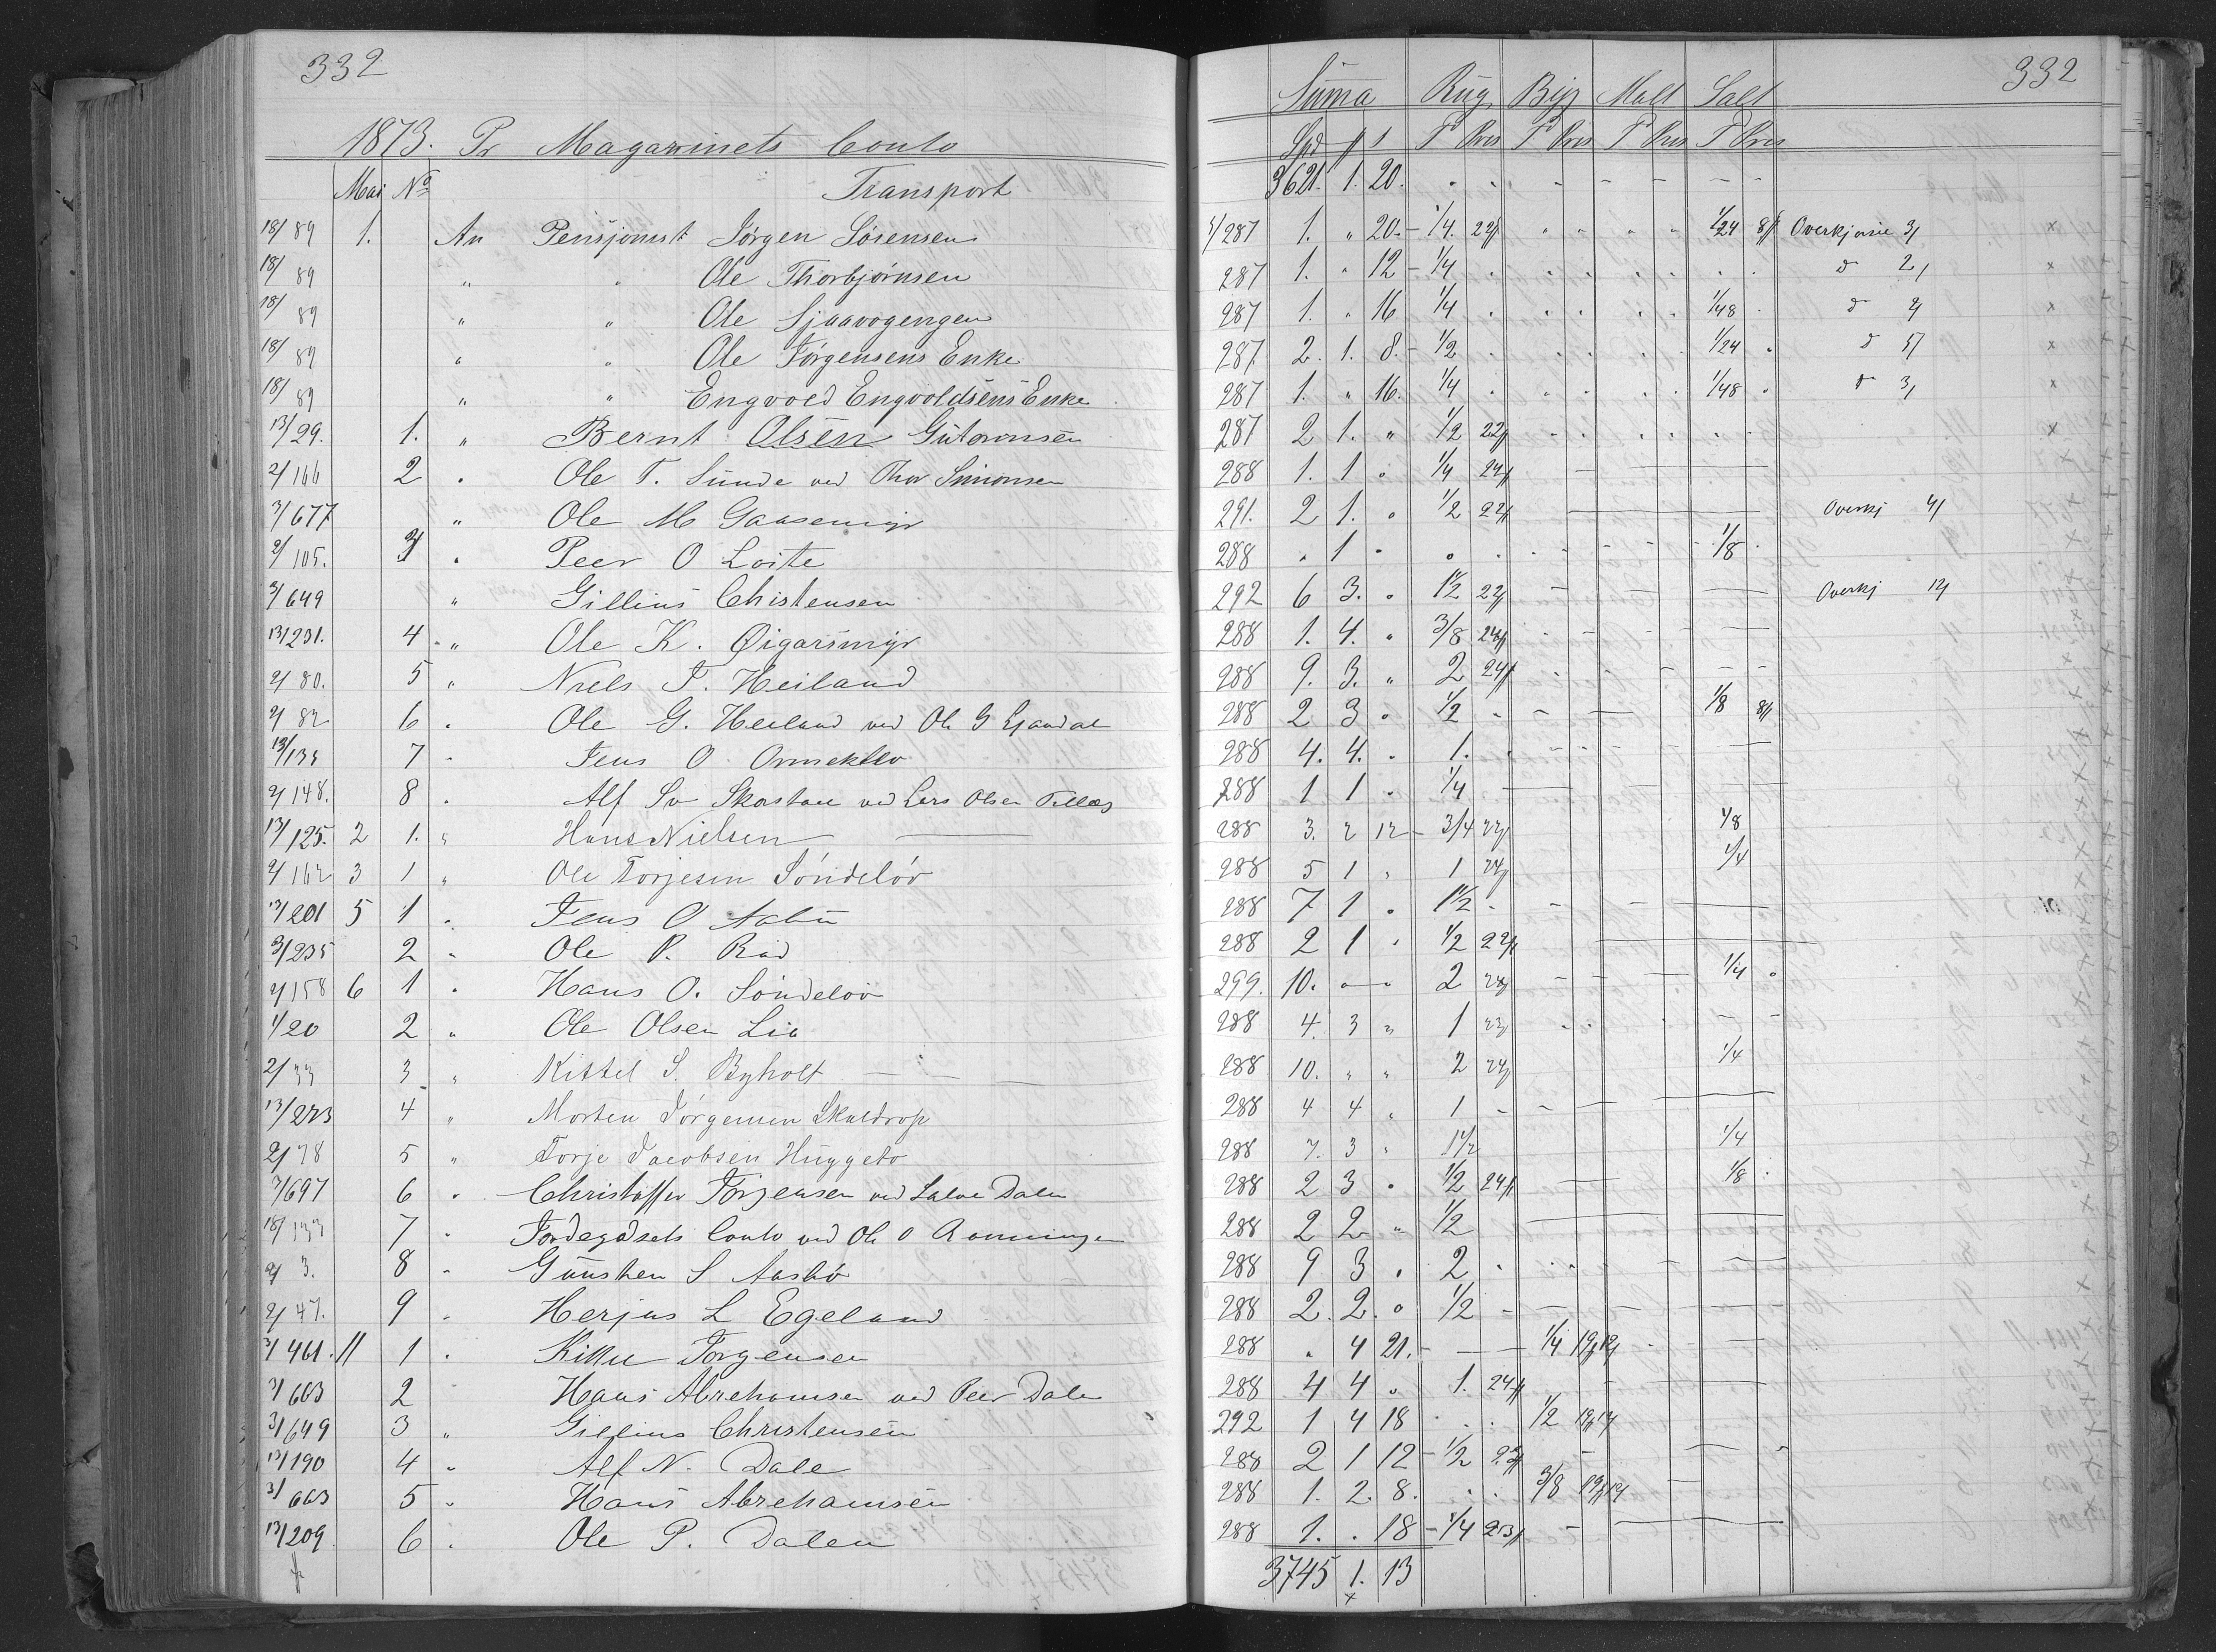 332
1873. Pr Magazinets Conto
Mai No Transport
18/89 1. An Pensjonist Jörgen Sörensen
18/89 " " Ole Thorbjörnsen
18/89 " " Ole Sjaavogengen
18/89 " " Ole Törgensens Enke
18/89 " " Engvold Engvoldsens Enke
13/29. 1. " Bernt Olsen Gutormsen
2/166 2 " Ole T. Sunde ved Thor Simonsen
3/677 " Ole M Gaasemyr
2/105. 3 " Peer O Loite
3/649 " Gillius Christensen
13/231. 4 " Ole K. Øigarsmyr
2/80. 5 " Niels T. Heiland
2/82 6 " Ole G. Heiland ved Ole G
13/135 7 " Jens O
2/148. 8 " Alf Sv ved Lars Olsen
13/125. 2 1. " Hans Nielsen
2/162 3 1 " Ole Torjesen Söndelöv
13/201 5 1 " Jens O Aabu
3/235 2 " Ole P. Rød
2/158 6 1 " Hans O. Söndelöv
1/20 2 " Ole Olsen Lia
2/33 3 " Kittel S. Byholt
13/223 4 " Morten Jörgensen
2/78 5 " Torje Jacobsen Huggeto
3/697 6 " Christoffer Törgensen ved Salve Dalen
18/133 7 " Jordegodsets Conto ved Ole O Rönningen
2/3. 8 " Gunsten S Aasbö
2/47. 9 " Herjus L Egeland
3/461. 11 1 " Törgensen
3/663 2 " Hans Abrehamsen ved Peer Dale
3/649 3 " Gillius Christensen
13/190 4 " Alf N. Dale
3/663 5 " Hans Abrehamsen
13/209 6 " Ole P. Dalen
332
Summa Rug Byg Malt Salt
Spd # s T Pris T Pris T Pris T Pris
3621. 1. 20.
1/287 1. " 20. 1/4. 22# 1/24 8# Overkjørsie 3/
287 1. " 12 1/4 d 2/
287 1. " 16 1/4 1/48 d 2/
287 2. 1. 8. 1/2 1/24 d 5/
287 1. " 16. 1/4 1/48 d 3/
287 2 1. " 1/2 22#
288 1. 1 " 1/4 24#
291. 2 1. " 1/2 22# Overkj 4/
288 " 1 " 1/8
292 6 3. " 1 1/2 22# Overkj 12/
288 1. 4. " 3/8 24#
288 9. 3. " 2 24#
288 2 3 " 1/2 1/8 8#
288 4. 4. " 1.
288 1 1 " 1/4
288 3. 2 12 3/4 22# 1/8
288 5 1 " 1 24# 1/4
288 7 1 " 1 1/2
288 2 1 " 1/2 22#
299. 10. " " 2 24# 1/4
288 4. 3 " 1 23#
288 10. " " 2 24# 1/4
288 4 4 " 1
288 7. 3 " 1 1/2 1/4
288 2 3 " 1/2 24# 1/8
288 2 2 " 1/2
288 9 3 " 2
288 2. 2. " 1/2
288 " 4 21. 1/4 19#12/
288 4 4 " 1. 24#
292 1 4 18 1/2 19#12/
288 2 1 12 1/2 22#
288 1. 2. 8. 3/8 19#12/
288 1. " 18 1/4 23#
3745 1. 13